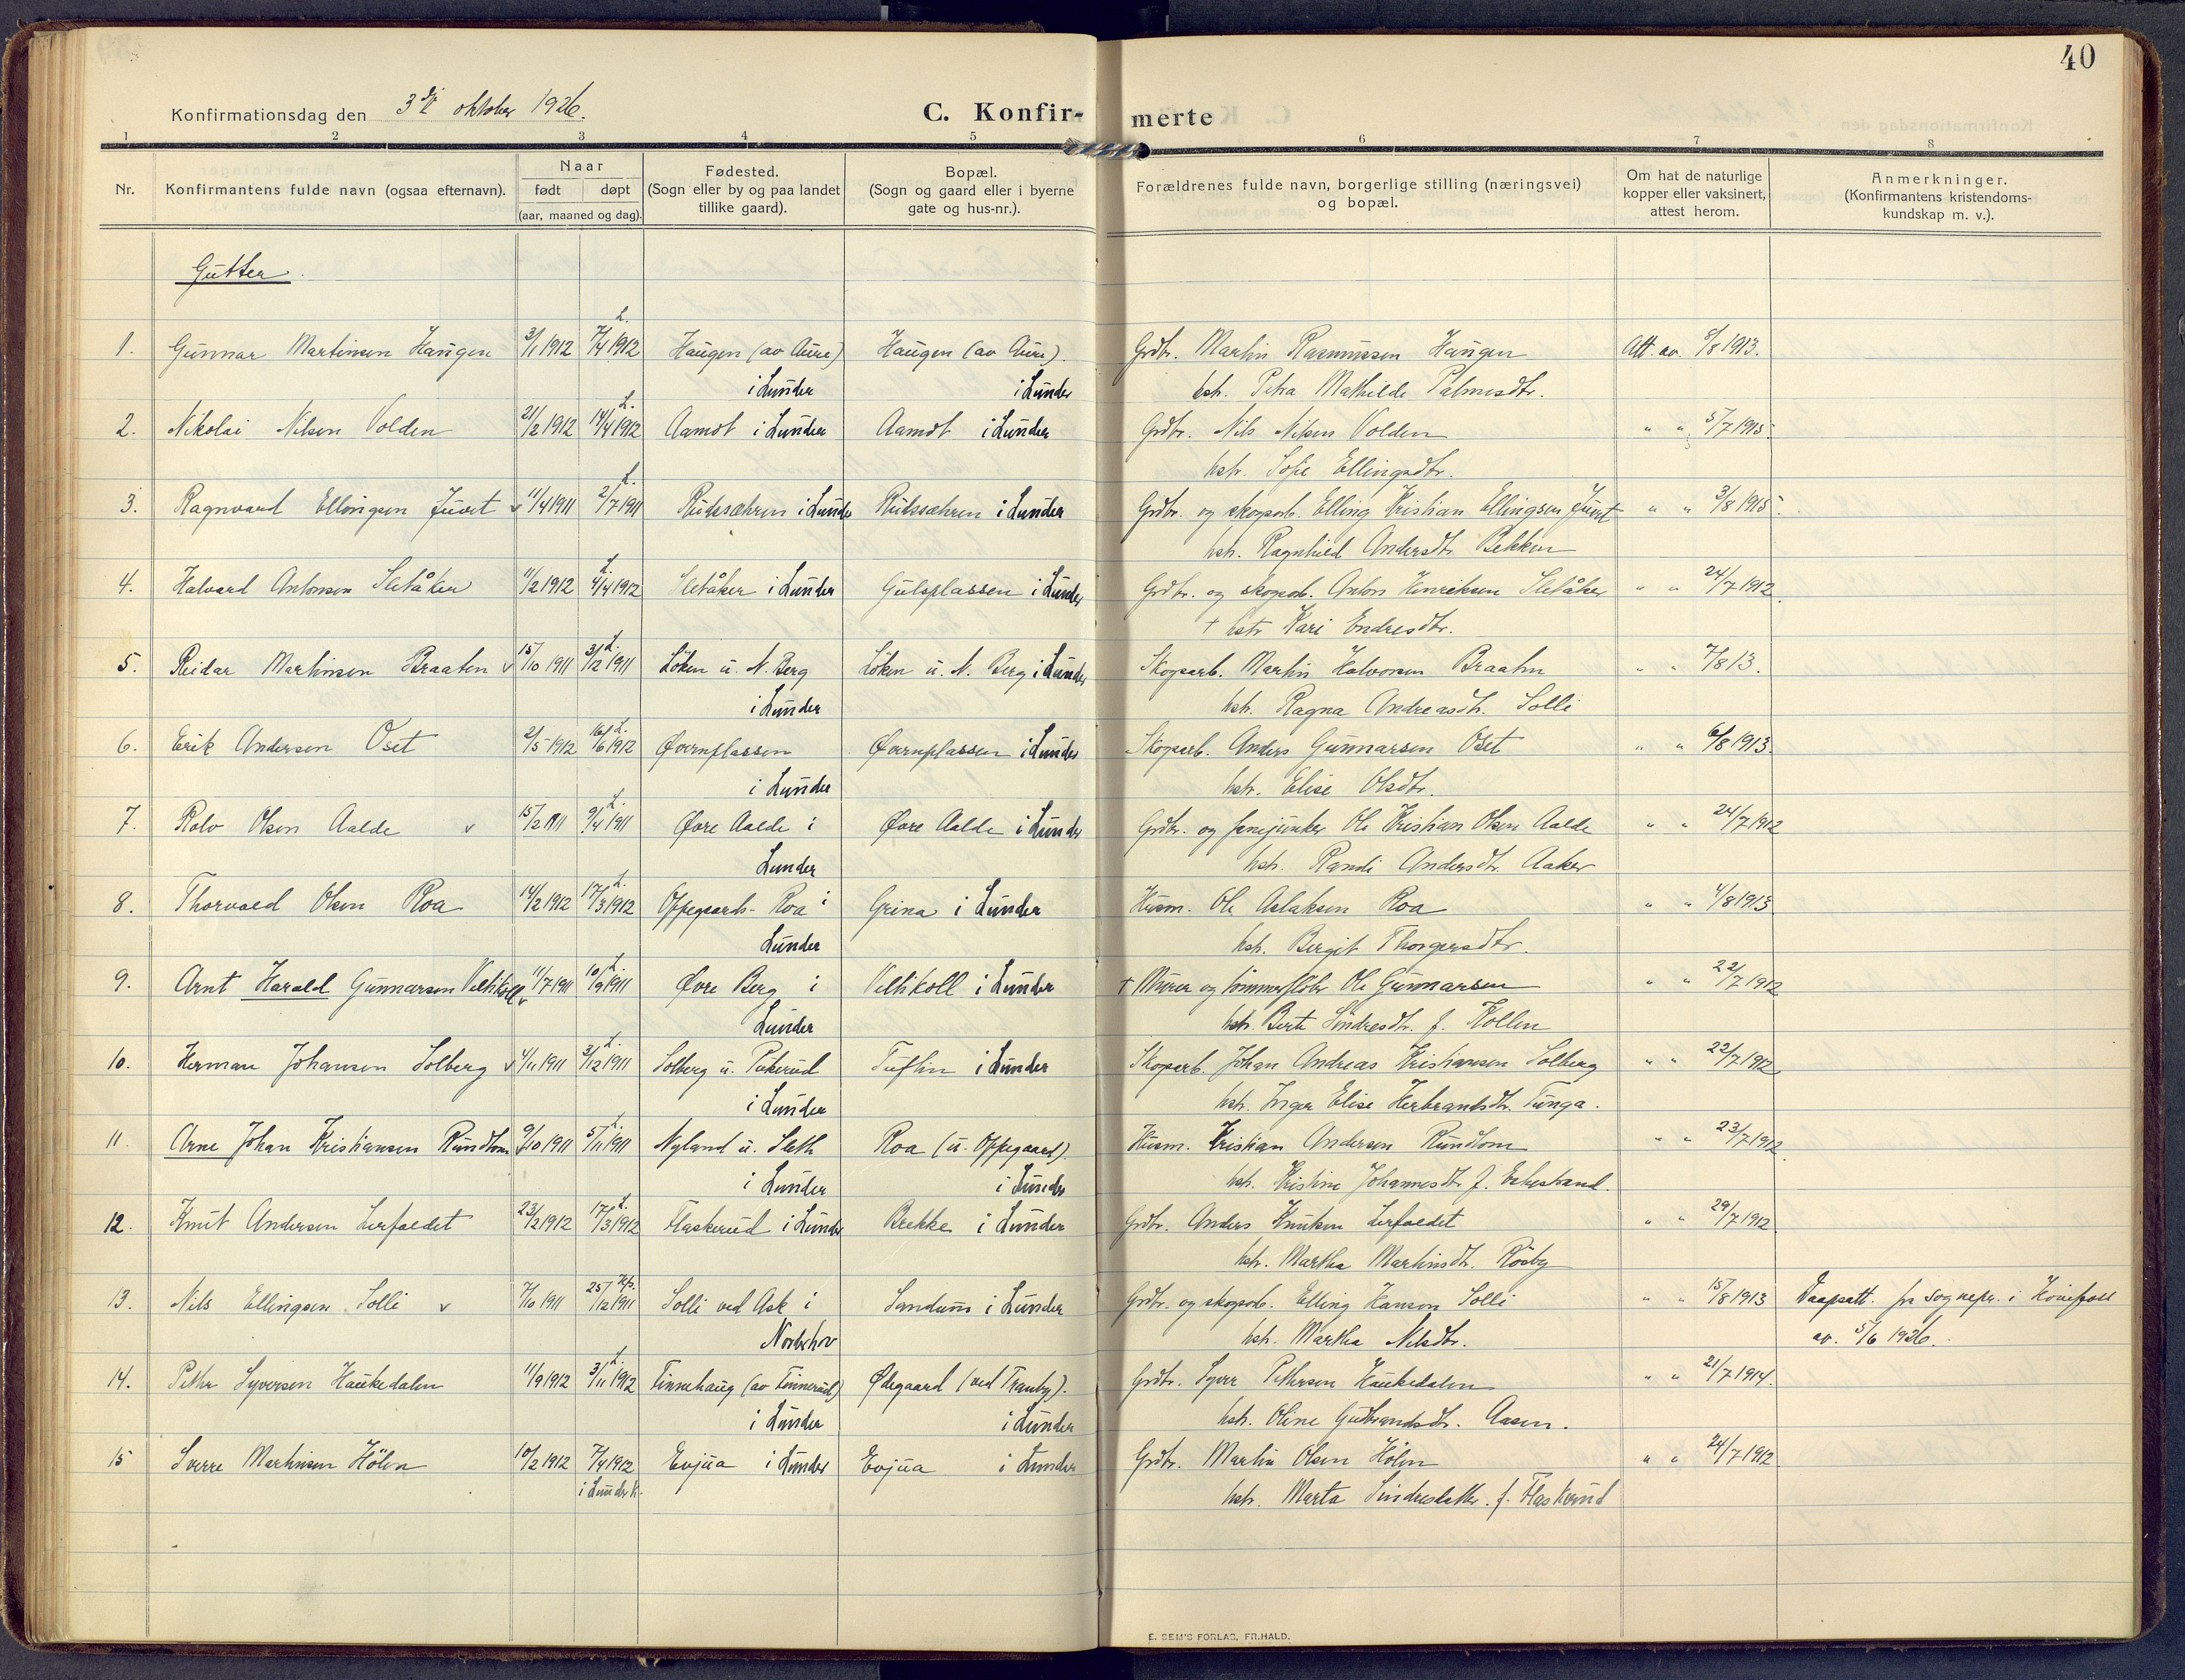 40
Konfirmationsdag den 3die oktober 1926.
C. Konfir-merte
1 2 3 4 5 6 7 8
Nr.
Konfirmantens fulde navn (ogsaa efternavn).
Naar
født døpt
(aar, maaned og dag).
Fødested.
(Sogn eller by og paa landet
tillike gaard).
Bopæl.
(Sogn og gaard eller i byerne
gate og hus-nr.).
Forældrenes fulde navn, borgerlige stilling (næringsvei)
og bopæl.
Om hat de naturlige
kopper eller vaksinert,
attest herom.
Anmerkninger.
(Konfirmantens kristendoms-
kundskap m. v.).
Gutter.
L.
1. Gunnar Martinsen Haugen 3/1 1912 7/4 1912 Haugen (av Aure) Haugen (av Aure). Grdbr. Martin Rasmussen Haugen Att. av. 5/8 1913.
i Lunder i Lunder hstr. Petra Mathilde Palmesdtr.
L.
2. Nikolai Nilsen Volden 21/2 1912 14/4 1912 Aamot i Lunder Aamot i Lunder Grdbr. Nils Nilsen Volden " " 5/7 1915.
hstr. Sofie Ellingsdtr.
L.
3. Ragnvard Ellingsen Juvet v 11/4 1911 2/7 1911 Rudssætren i Lunder Rudssætren i Lunder Grdbr. og skogsarb. Elling Kristian Ellingsen Juvet " " 3/8 1915.
hstr. Ragnhild Andersdtr. Bekken
L.
4. Halvard Antonsen Sletåker 11/2 1912 4/4 1912 Sletåker i Lunder Gulsplassen i Lunder Grdbr. og skogsarb. Anton Henriksen Sletåker " " 24/7 1912.
† hstr Kari Endresdtr.
L.
5. Reidar Martinsen Braaten v 15/10 1911 31/12 1911 Løken u. N. Berg Løken u. N. Berg i Lunder Skogsarb. Martin Halvorsen Braaten " " 7/8 13.
i Lunder hstr. Ragna Andreasdtr. Solli
L.
6. Erik Andersen Oset 2/5 1912 16/6 1912 Øvernplassen Øvernplassen i Lunder Skogsarb. Anders Gunnarsen Oset " " 6/8 1913.
i Lunder hstr. Elise Olsdtr.
L.
7. Rolv Olsen Aalde v 15/2 1911 9/4 1911 Øvre Aalde i Øvre Aalde i Lunder Grdbr. og fanejunker Ole Kristian Olsen Aalde " " 24/7 1912
Lunder hstr. Randi Andersdtr. Aaker
L.
8. Thorvald Olsen Roa 14/2 1912 17/3 1912 Oppegaards-Roa i Grina i Lunder Husm. Ole Aslaksen Roa " " 4/8 1913
Lunder hstr. Bergit Thorgersdtr.
L.
9. Arnt Harald Gunnarsen Veltikoll v 11/7 1911 10/9 1911 Øvre Berg i Veltikoll i Lunder † Murer og tømmerfløter Ole Gunnarsen " " 22/7 1912
Lunder hstr. Berte Sindresdtr. f. Kollen
L.
10. Herman Johansen Solberg v 4/11 1911 3/12 1911 Solberg u. Pukerud Tuftin i Lunder Skogsarb. Johan Andreas Kristiansen Solberg " " 22/7 1912.
i Lunder hstr. Inger Elise Herbrandsdtr. Tunga.
L.
11. Arne Johan Kristiansen Rundtom v 9/10 1911 5/11 1911 Nyland u. Sleth Roa (u. Oppegaard). Husm. Kristian Andersen Rundtom " " 23/7 1912.
i Lunder i Lunder hstr. Kristine Johannesdtr f.
L.
12. Knut Andersen Lerfaldet 23/2 1912 17/3 1912 Flaskerud i Lunder Brekke i Lunder Grdbr. Anders Knutsen Lerfaldet " " 29/7 1912
hstr. Martha Martinsdtr. Rösby
13. Nils Ellingsen Solli v 7/10 1911 25/12 1911 Solli ved Ask i Sandum i Lunder Grdbr. og skogsarb. Elling Hanson Solli " " 15/8 1913 Daapsatt. fra sognepr. i Hönefoss
Norderhov hstr. Martha Nilsdtr. av. 5/6 1926.
L.
14. Petter Syversen Haukedalen 11/9 1912 3/11 1912 Finnehaug (av Finnerud) Ødegaard (ved Tranby). Grdbr. Syver Pettersen Haukedalen " " 21/7 1914.
i Lunder i Lunder hstr. Oline Gudbrandsdtr. Aasen.
15 Sverre Martinsen Hölen 10/2 1912 7/4 1912 Evjua i Lunder Evjua i Lunder Grdbr. Martin Olsen Hölen " " 24/7 1912
i Lunder k. hstr. Marta Sindresdatter f. Flaskerud
E. SEM'S FORLAG, FR.HALD.